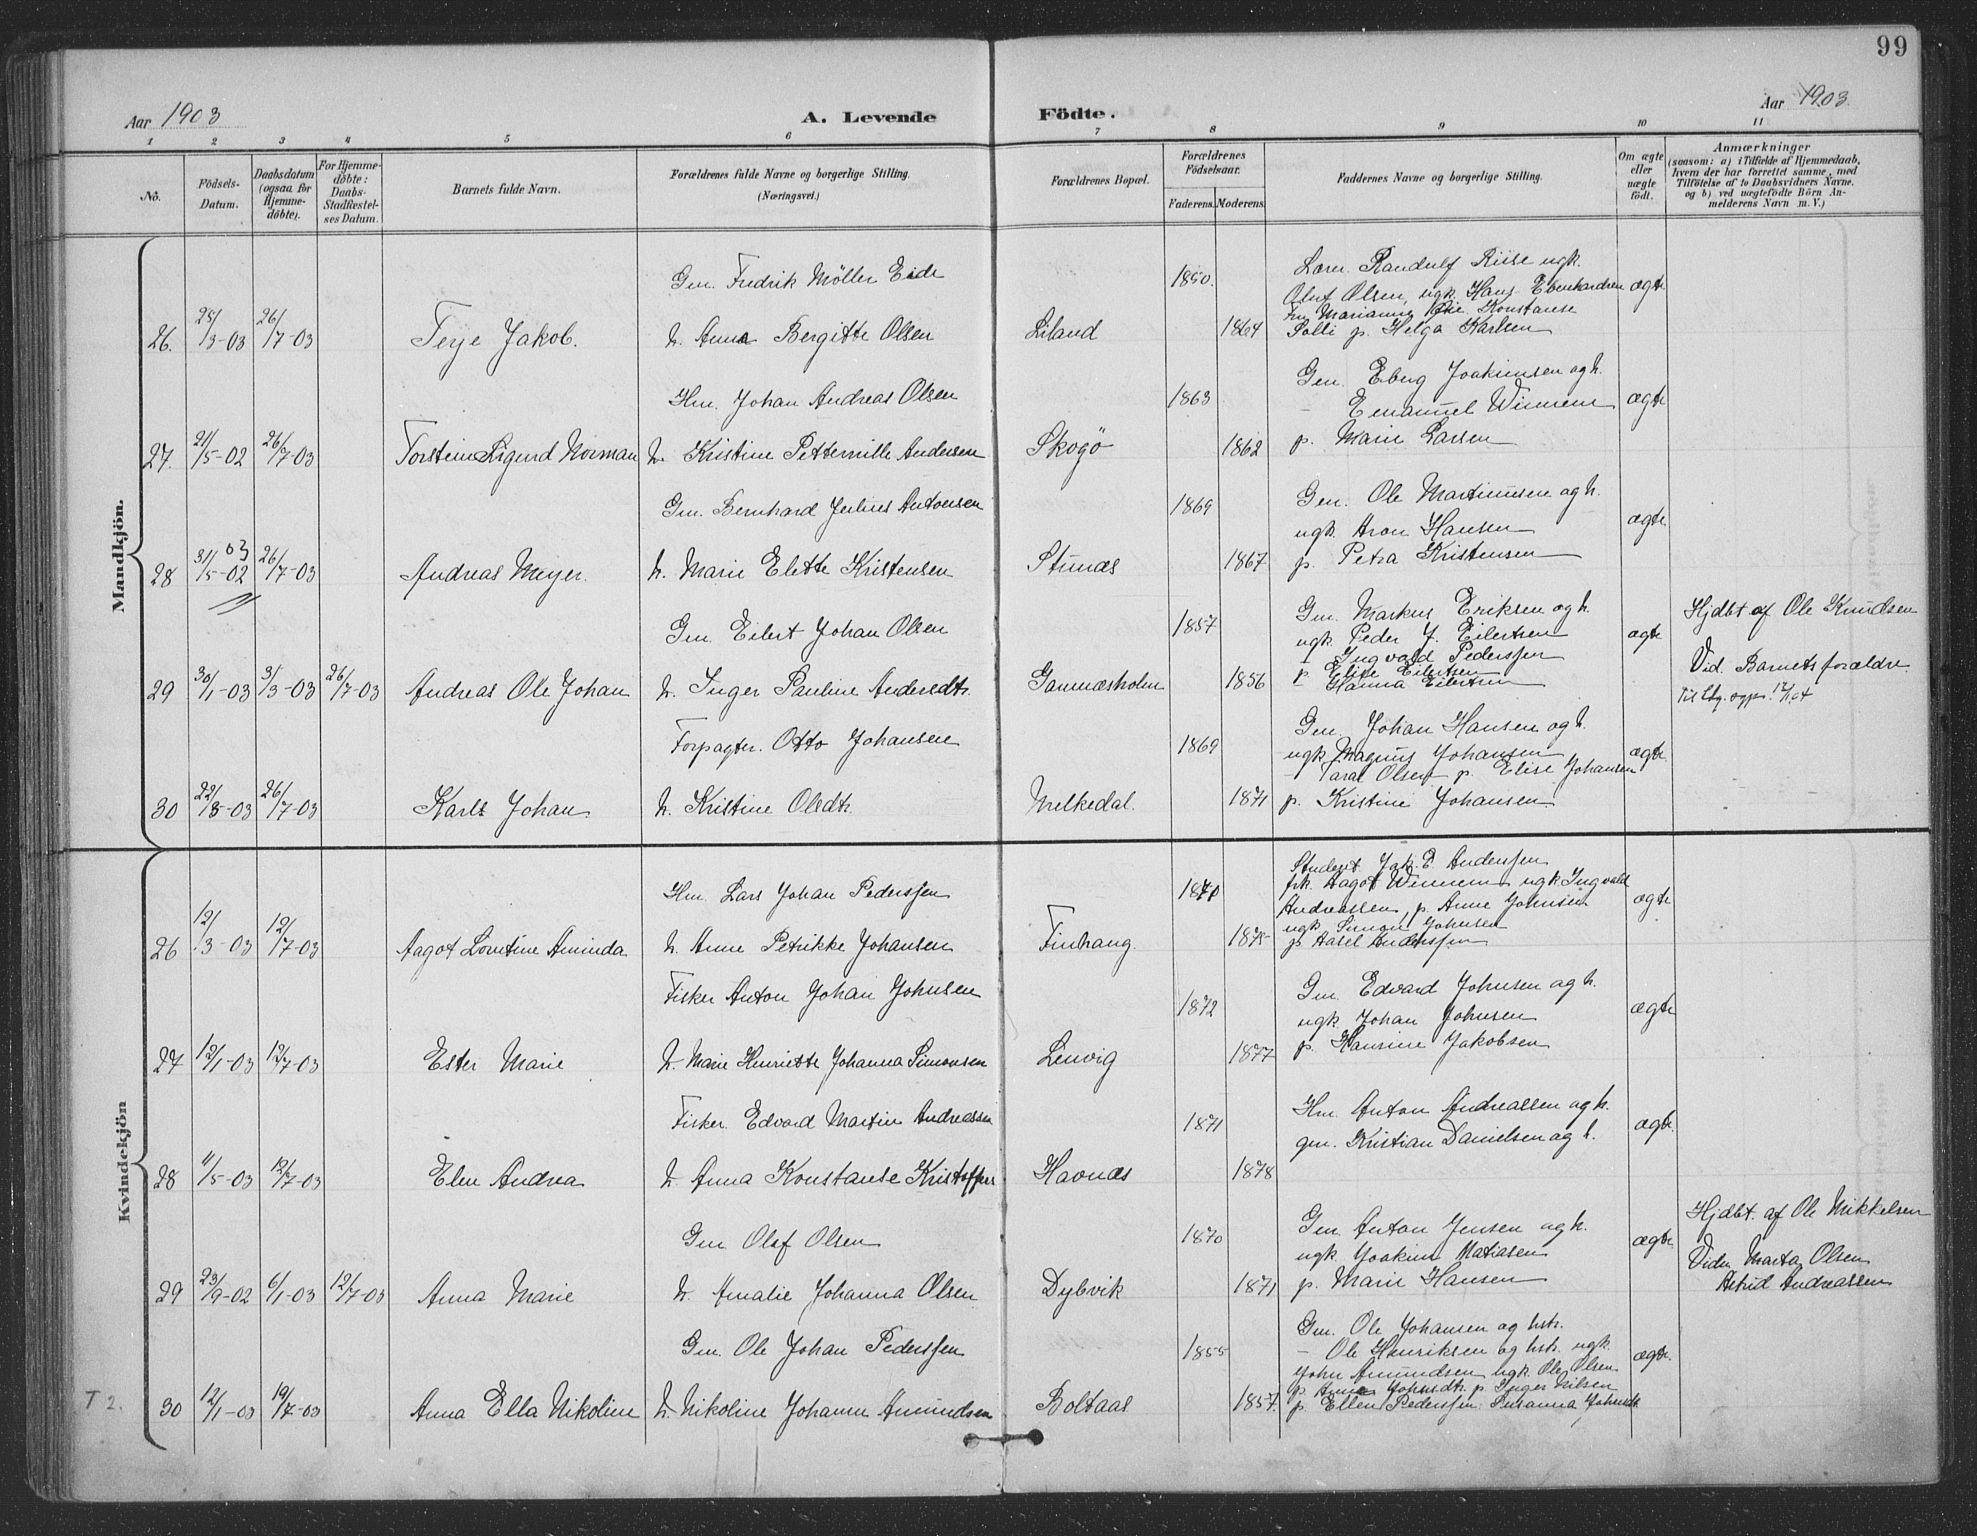 99
Aar 1903
A. Levende
Födte.
Aar 1903.
1 2 3 4 5 6 7 8 9 10 11
No.
Födsels-
Datum.
Daabsdatum
(ogsaa for
Hjemme-
döbte).
For Hjemme-
döbte:
Daabs-
Stadfæstel-
ses Datum.
Barnets fulde Navn.
Forældrenes fulde Navne og borgerlige Stilling.
(Næringsvei.)
Forældrenes Bopæl.
Forældrenes
Födselsaar.
Faderens. Moderens.
Faddernes Navne og borgerlige Stilling.
Om ægte
eller
uægte
födt.
Anmærkninger
(saasom: a) i Tilfælde af Hjemmedaab,
hvem der har forrettet samme, med
Tilföielse af to Daabsvidners Navne,
og b) ved uægtefödte Börn An-
melderens Navn m. V.)
Mandkjön.
Gm. Fredrik Möller Eide
1850.
Randulf Riise ugk.
Olut Olsen, ugk. Hans Ebenhardsen
ægte
Konstanse
26.
/3-03
26/7-03
Terje Jakob.
h. Anna Bergitte Olsen
Liland
1864
p. Helga Karlsen
Hm. Johan Andreas Olsen
1863
Gm. Eberg Joakimsen og h.
– Emanuel Winnem
ægte
27.
21/5-02
26/7-03
Torstein Sigurd Norman
h. Kristine Petternille Andersen
Skogö
1862
p. Marie Larsen
Gm. Bernhard Julius Antonsen
1869
Gm. Ole Martinusen og h.
ugk. Aron Hansen
ægte
28
31/5-02
03
26/7-03
Andreas Meyer.
h. Marie Elette Kristensen
Stunæs
1867
p. Petra Kristensen
Gm. Eilert Johan Olsen
1857
Gm. Markus Eriksen og h.
ugk. Peder J. Eilertsen
– Ingvald Pederssen
ægte
Hjdbt af Ole Knudsen
29
30/1-03
3/3-03
26/7-03
Andreas Ole Johan
h. Inger Pauline Andersdtr.
Gammesholm
1856
p. Elise Eilertsen
– Hanna Eilertsen
Vid. Barnets forældre
Forpagter. Otto Johansen
1869
Gm. Johan Hansen og h.
ugk. Magnus Johansen
Olsen p. Elise Johansen
ægte
30
22/
26/7-03
Karl Johan
h. Kristine Olsdtr.
Melkedal.
1871
p. Kristine Johansen
Kvindekjön
Hm. Lars Johan Pederssen
Student Jak. E. Anderssen
frk. Aagot Winnem ugk. Ingvald
Andreassen, p. Anne Johnsen
ægte
26
12/3-03
12/7-03
Aagot Lovetine Aminda
h. Anne Petrikke Johansen
Finhaug.
1875
ugk. Simon Johnsen
p. Aasel Anderssen
Fisker Anton Johan Johnsen
1872
Gm. Edvard Johnsen og h.
ugk. Johan Johnsen
ægte
27
12/1-03
12/7-03
Ester Marie
h. Marie Henriette Johanna Simonsen
Lenvig
1877
p. Hansine Jakobsen
Fisker Edvard Martin Andreassen
1871
Hm. Anton Andreassen og h.
gm. Kristian Danielsen og h.
ægte.
28
/5-03
12/7-03
Elen Andrea
h. Anna Konstanse
Havnæs
1878
Gm Olaf Olsen
1870
Gm. Anton Jensen og h.
ugk Joakim Matiasen
ægte.
Hjdbt. af Ole Mikkelsen
29
23/9-02
6/1-03
12/7-03
Anna Marie
h. Amalie Johanna Olsen
Dybvik
1871
p. Marie Hansen
Vidn. Marta Olsen
Astrid Andreassen
Gm. Ole Johan Pederssen
1855
Gm. Ole Johansen og hstr.
– Ole Henriksen og hstr. ugk.
John Amundsen ugk. Ole Olsen
ægte.
T 2.
30
12/1-03
19/7-03
Anna Ella Nikoline
h. Nikoline Johanne Amundsen
Boltaas
1857.
p. Anna Johnsdtr. p. Inger Nilsen
p. Ellen Pederssen. Susanna Johnsdt.